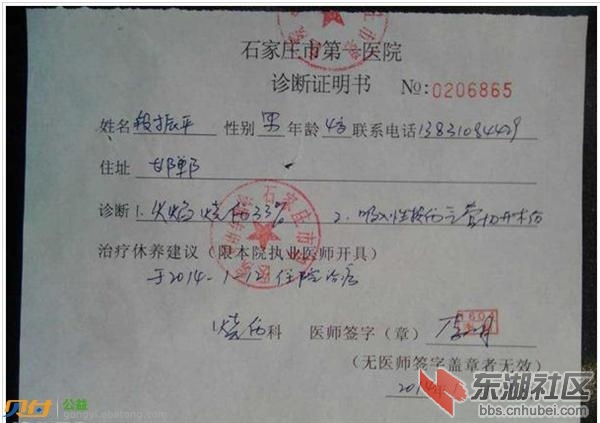 石家庄市第一医院
诊断证明书 №:0206865
姓名 段振平 性别 男 年龄 联系电话 13831084429
住址 邯郸
诊断 1. 火焰烧伤33% 2. 吸入性损伤气管切开术后
治疗休养建议（限本院执业医师开具）
于2014-1-12住院治疗
烧伤科 医师签字（章）
（无医师签字盖章者无效）
2014年1
公益
gongyi.ebatong.com
东湖社区
bbs.cnhubei.com